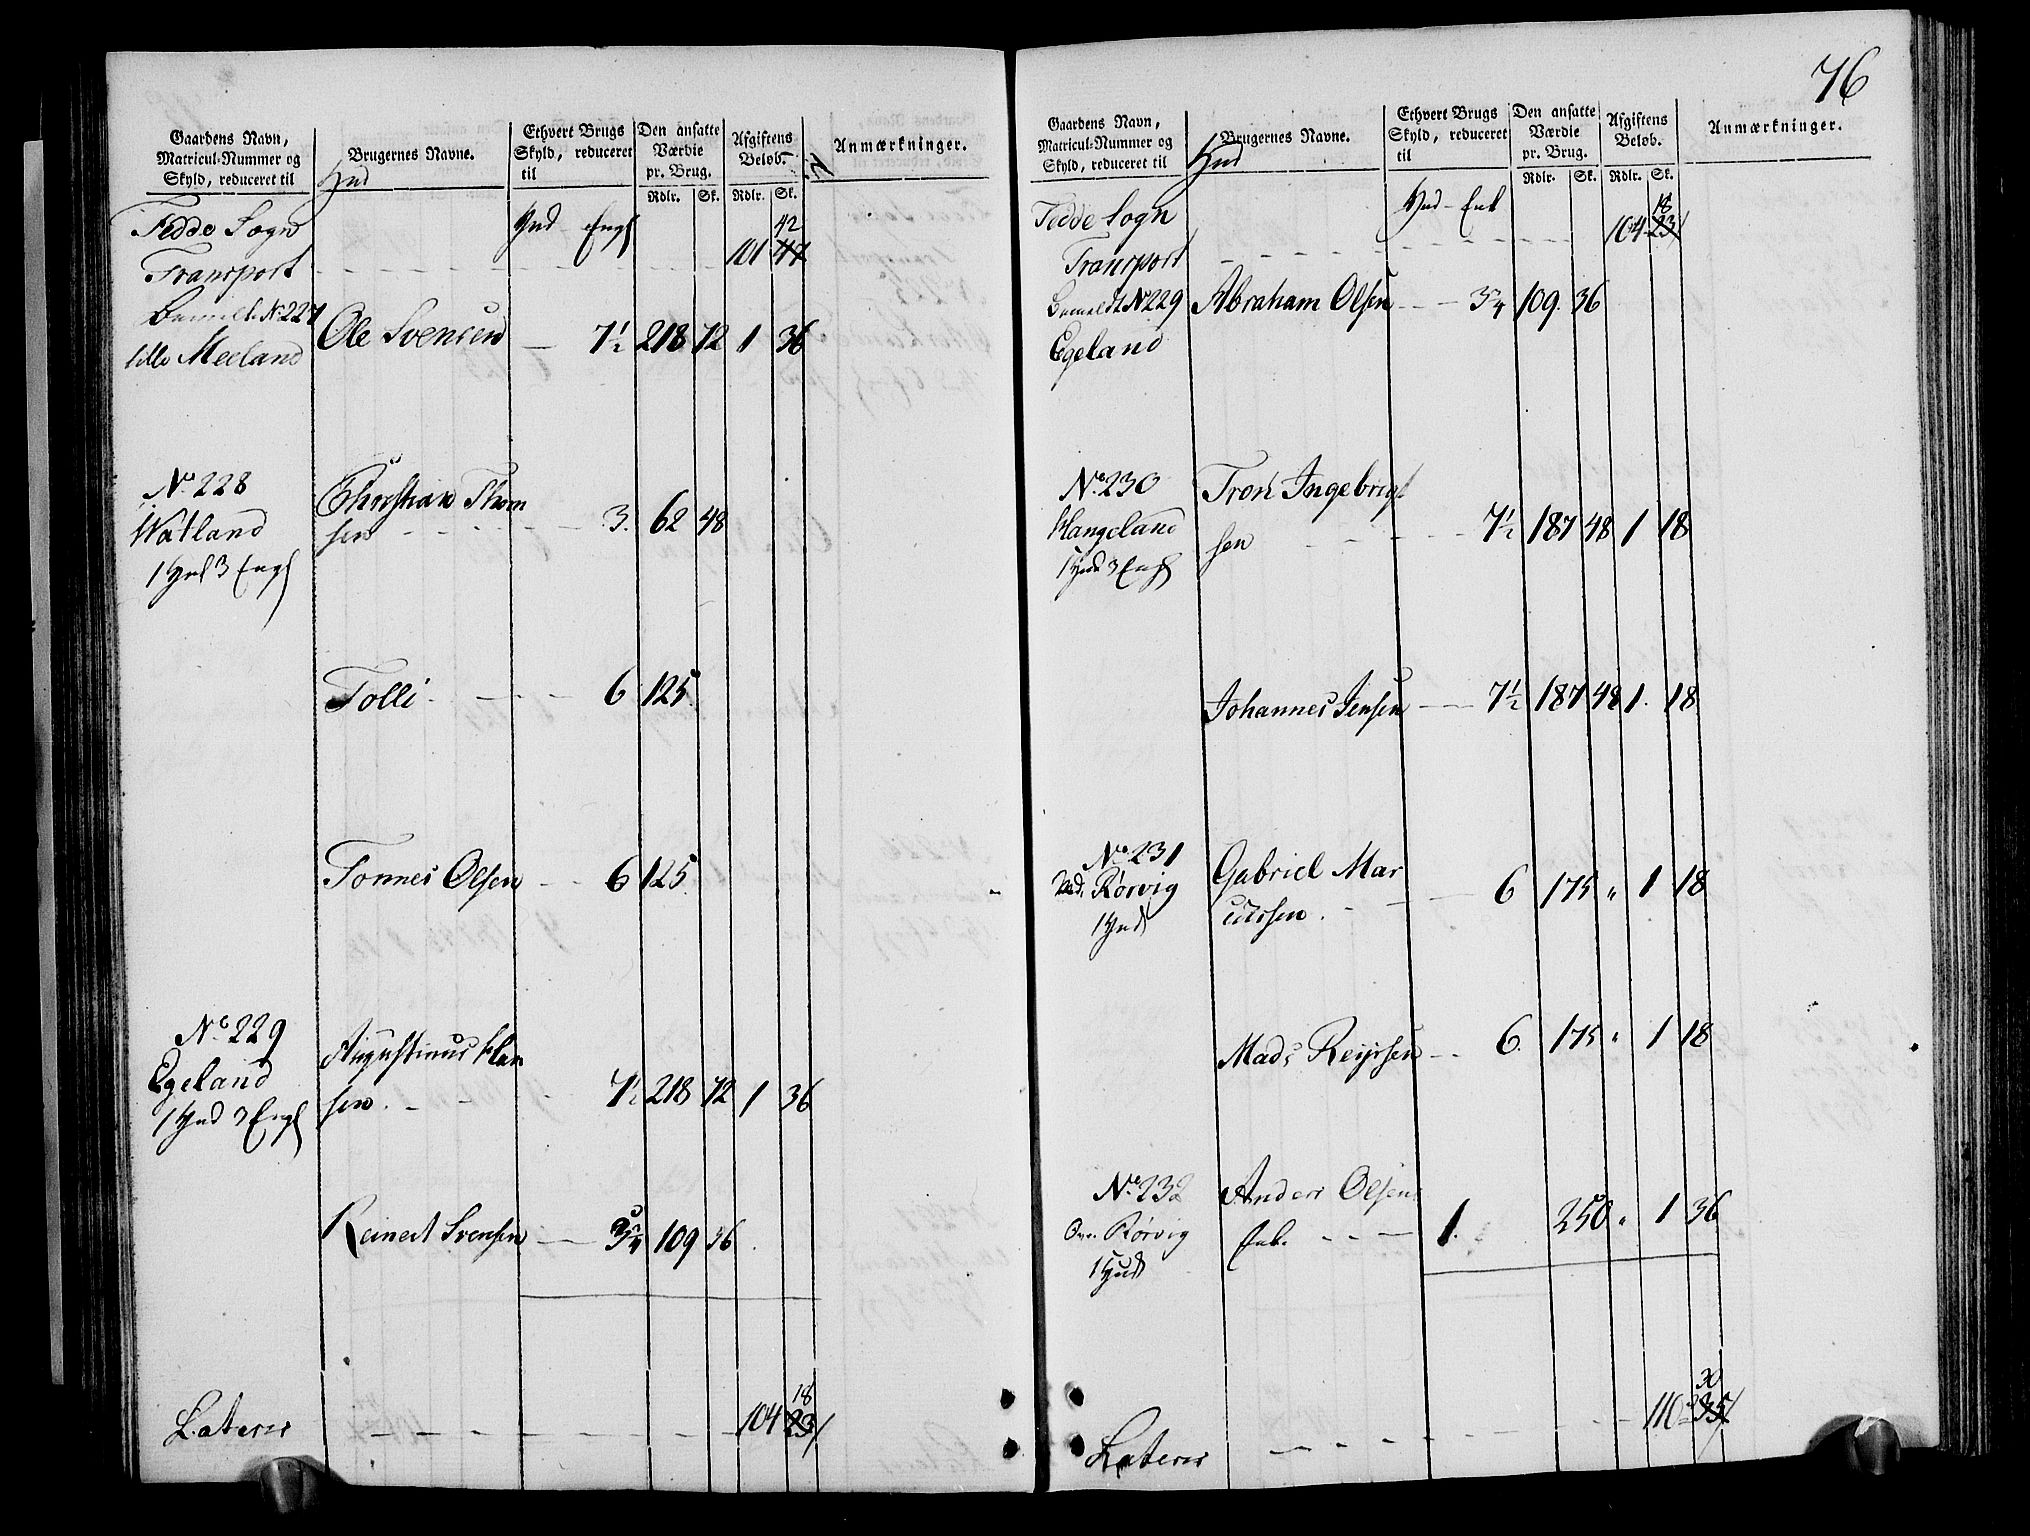 Gaardens Navn, Matricul-Nummer og Skyld, reduceret til
Brugernes Navne.
Ethvert Brugs Skyld, reduceret til
Den ansatte Værdie pr. Brug.
Afgiftens Beløb.
Anmærkninger.
Rdlr. Sk. Rdlr. Sk.
Hud
Fedde Sogn Hud Engl 42
Transport 101 47
No 227 Ole Svensen 7½ 218 72 1 36
lille Meeland
No 228 Christian Thom
Watland sen 3. 62 48
1 Hud 3 Engl
Tolli 6 125.
Tonnes Olsen 6 125.
No 229 Augustinus Han
Egeland sen. 7½ 218 72 1 36
1 Hud 3 Engl
Reinert Svensen 3¾ 109 36
18
Lateris 104 23
76
Gaardens Navn, Matricul-Nummer og Skyld, reduceret til
Brugernes Navne.
Ethvert Brugs Skyld, reduceret til
Den ansatte Værdie pr. Brug.
Afgiftens Beløb.
Anmærkninger.
Rdlr. Sk. Rdlr. Sk.
Hud
Fedde Sogn Hud 18
Transport 104 23
No 229 Abraham Olsen 3¾ 109. 36
Egeland
No 230 Tron Ingebrigt
Hangeland sen 7½ 187 48 1 18
1 Hud 3 Engl
Johannes Jensen 7½ 187 48 1. 18
No 231 Gabriel Mar
Ned. Rørvig cussen. 6 175 " 1 18
1 Hud
Mads Reijersen 6. 175 " 1 18
No 232 Anders Olsen
Ovr. Rørvig Enk. 1. 250 " 1 36
1 Hud
30
Lateris 110 35